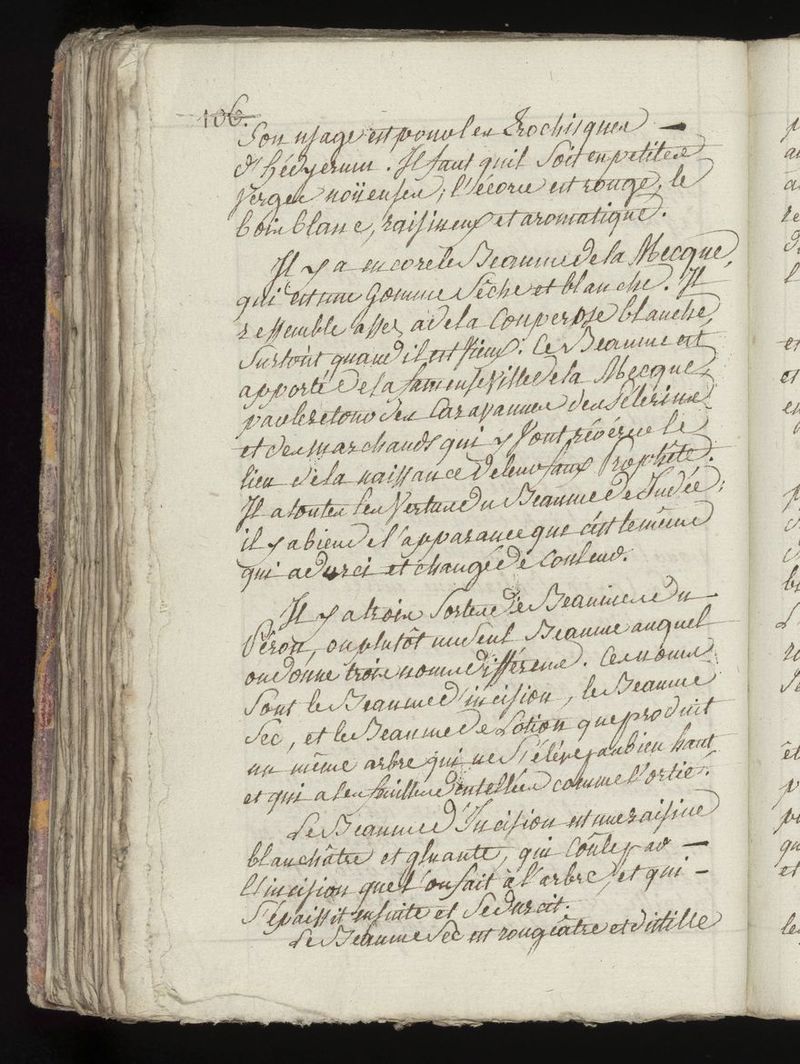 106.
Son usage est pour les Trochisques —
d'hédycrum. Il faut quil Soit en petites
verges noüeuses; l'écorce est rouge, le
bois blanc, raisineux et aromatique.
Il y a encore le Beaume de la Mecque,
qui est une Gomme Séche et blanche. Il
ressemble assez a de la Couperose blanche,
Surtout quand il est vieux. Ce Beaume est
apporté de la fameuse Ville de la Mecque
par le retour des Caravannes des Pélerins
et des marchands qui y Vont révérer le
lieu de la naissance de leur faux Prophête.
Il a toutes les Vertus du Beaume de Judée;
il y a bien de l'apparance que c'est le même
qui a durci et changé de Couleur.
Il y a trois Sortes de Beaumes du
Pérou, ou plutôt un Seul Beaume auquel
on donne trois noms différens. Ces noms
Sont le Beaume d'incision, le Beaume
Sec, et le Beaume de Lotion que produit
un même arbre qui ne S'éléve pas bien haut
et qui a les feuilles dentellées comme l'ortie.
Le Beaume d'Incision est une raisine
blanchâtre et gluante, qui Coule par —
l'incision que l'on fait à l'arbre, et qui —
S'épaissit ensuite et Se durcit.
Le Beaume Sec est rougeâtre et distille